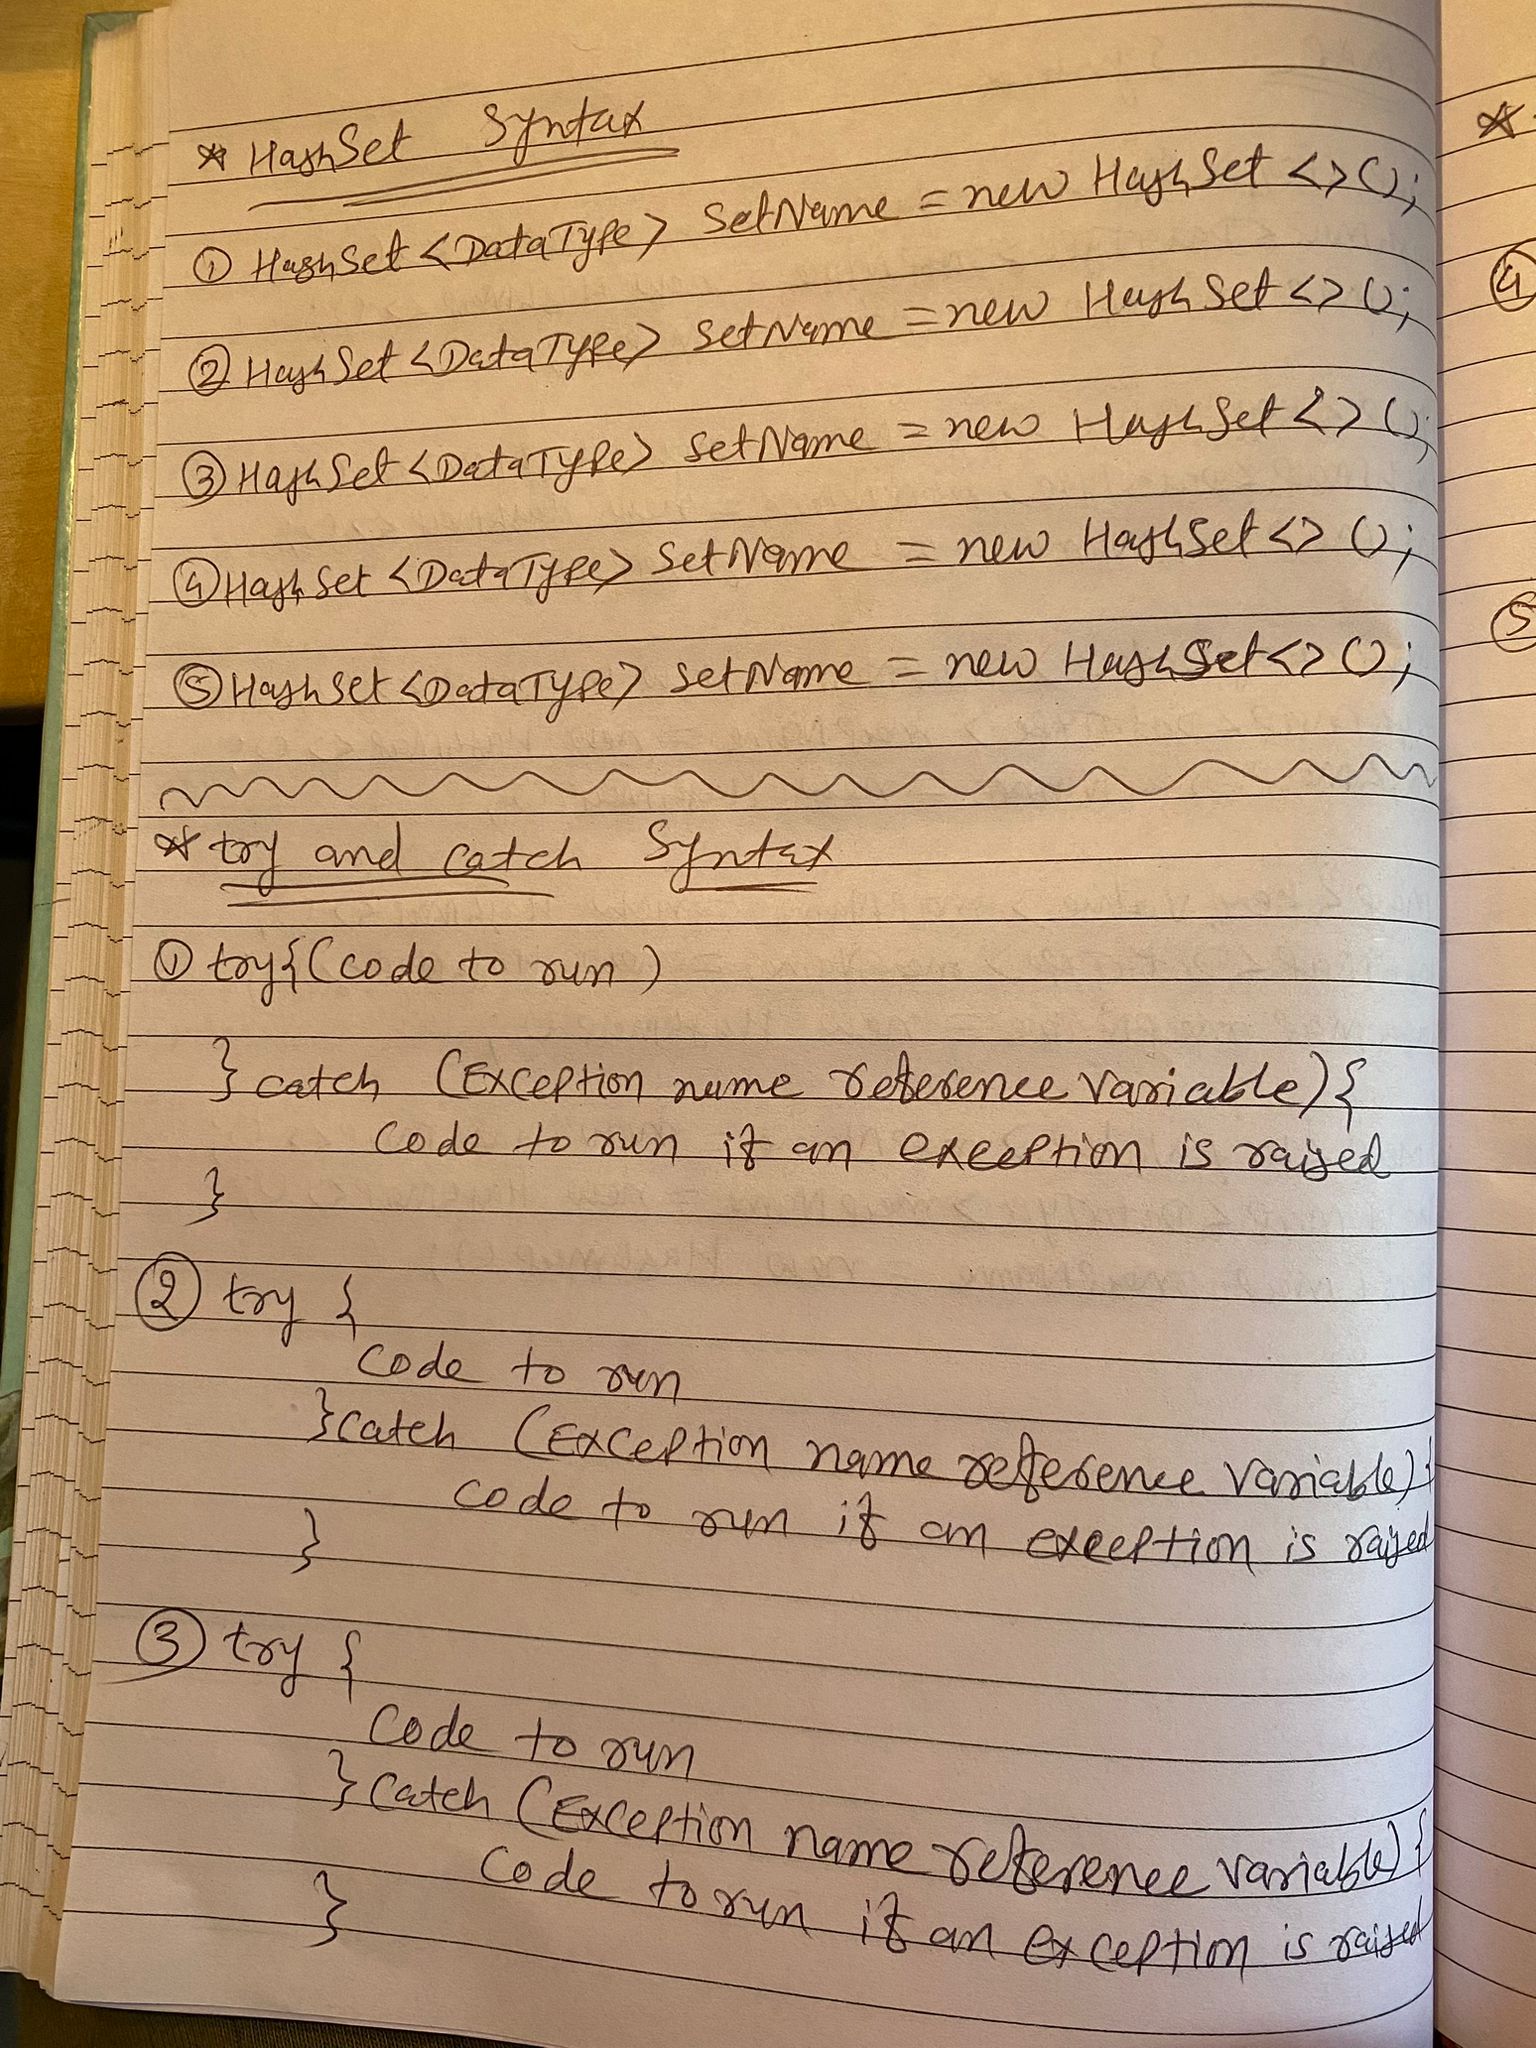 * HashSet Syntax
① HashSet <DataType> SetName = new HashSet <>();
② HashSet <DataType> SetName = new HashSet <> ();
③ HashSet <DataType> SetName = new HashSet <> ();
④ HashSet <DataType> SetName = new HashSet <> ();
⑤ HashSet <DataType> SetName = new HashSet <> ();
* try and catch Syntax
① try{(code to run)
} catch (Exception name reference variable){
code to run if an exception is raised
}
② try {
code to run
}catch (Exception name reference variable) {
code to run if an exception is raised
}
③ try {
code to run
} catch (Exception name reference variable) {
code to run if an exception is raised
}
*
④
⑤